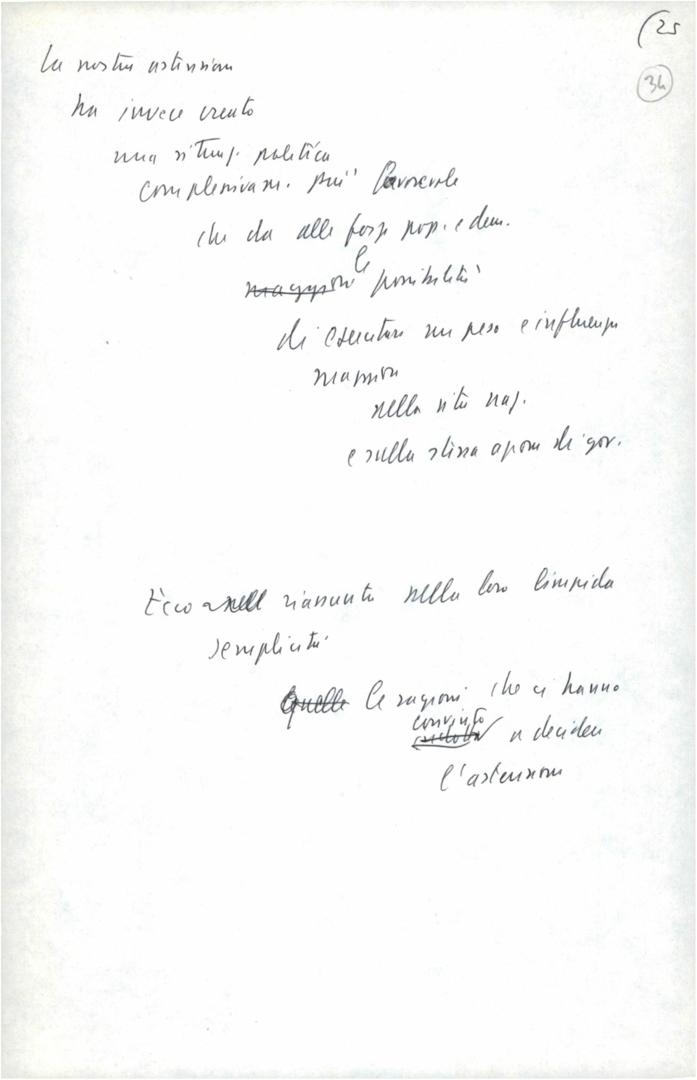 (25
34
La nostra astensione
ha invece creato
una situaz. politica
complessivam. più favorevole
che da alle forze pop. e dem.
le
maggiori possibilità
di esercitare un peso e influenza
maggiore
nella vita naz.
e sulla stessa azione di gov.
Ecco riassunte nella loro limpida
semplicità
Quelle le ragioni che ci hanno
convinto
a decidere
l'astensione